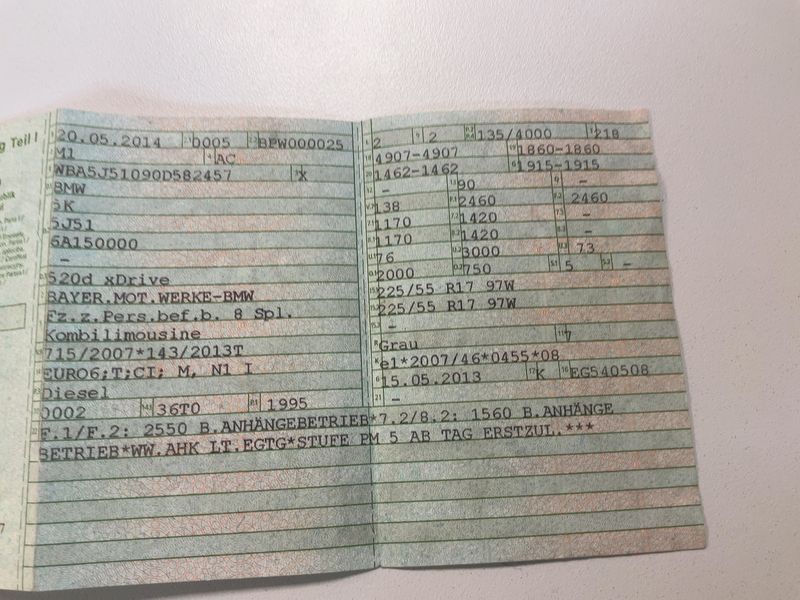 g Teil I
20.05.2014 0005 BPW000025
M1 AC
WBA5J51090D582457 X
BMW
5K
5J51
6A150000
–
520d xDrive
BAYER.MOT.WERKE-BMW
Fz.z.Pers.bef.b. 8 Spl.
Kombilimousine
715/2007*143/2013T
EURO6;T;CI; M, N1 I
Diesel
0002 36T0 1995
F.1/F.2: 2550 B.ANHÄNGEBETRIEB*7.2/8.2: 1560 B.ANHÄNGE
BETRIEB*WW.AHK LT.EGTG*STUFE PM 5 AB TAG ERSTZUL.***
2 2 135/4000 218
4907-4907 1860-1860
1462-1462 1915-1915
– 90 –
138 2460 2460
1170 1420 –
1170 1420 –
76 3000 73
2000 750 5 –
225/55 R17 97W
225/55 R17 97W
–
Grau 7
e1*2007/46*0455*08
15.05.2013 K EG540508
–